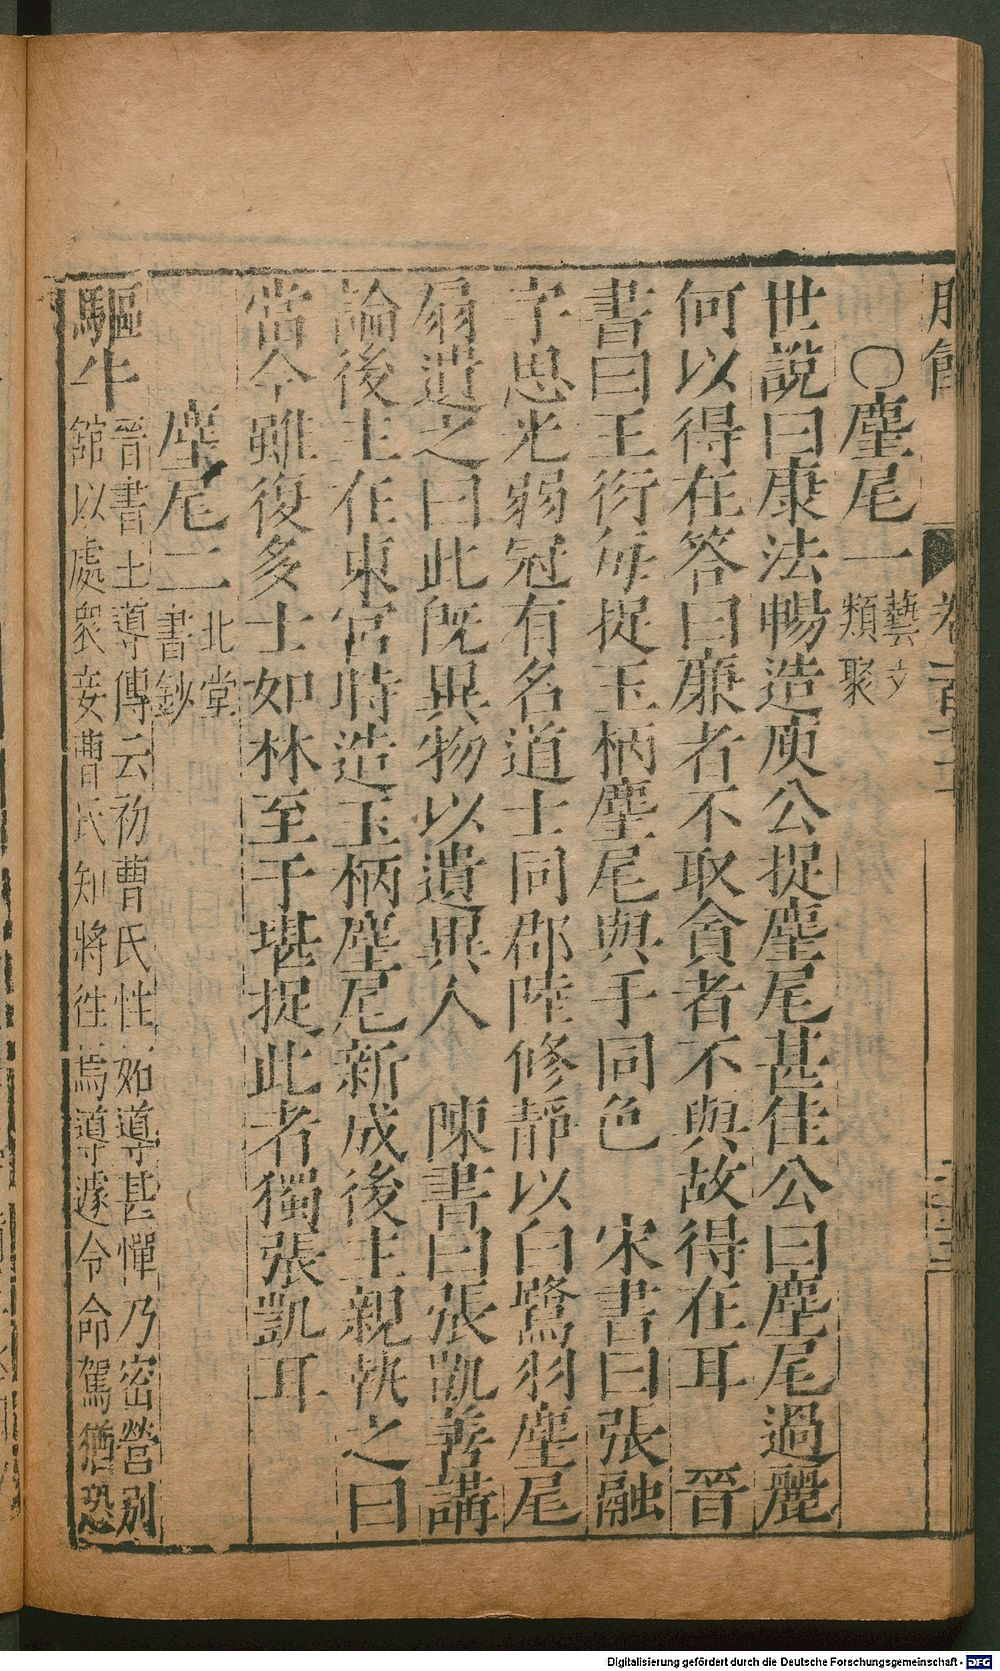 〇麈尾一藝文類聚
世說曰康法暢造庾公捉麈尾甚佳公曰麈尾過麗
何以得在答曰廉者不取貪者不與故得在耳　晉
書曰王衍每捉玉柄麈尾與手同色　宋書曰張融
字思光弱冠有名道士同郡陸修靜以白鷺羽麈尾
扇遺之曰此既異物以遺異人　陳書曰張凱善講
論後主在東宮時造玉柄麈尾新成後主親執之曰
當今雖復多士如林至于堪捉此者獨張凱耳
麈尾二北堂書鈔
驅牛晉書王導傳云初曹氏性妬導甚憚乃密營别
舘以處衆妾曹氏知將往焉導遽令命駕猶恐
Digitalisierung gefördert durch die Deutsche Forschungsgemeinschaft - DFG